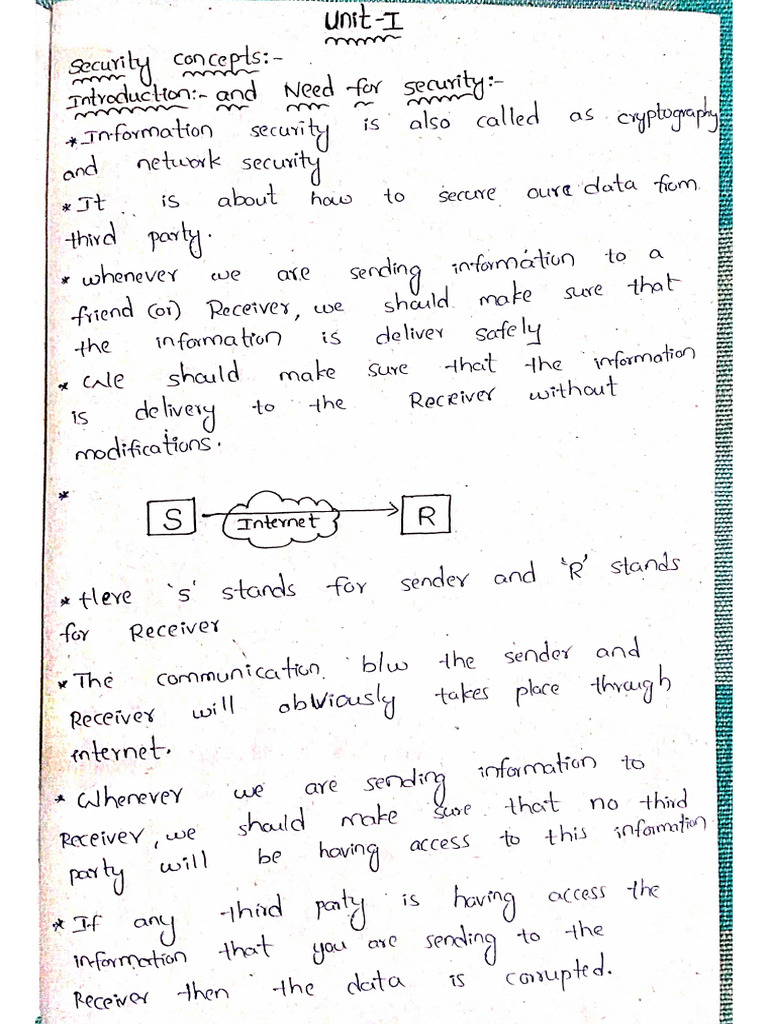 Unit-I
Security concepts:-
Introduction:- and Need for security:-
* Information security is also called as cryptography
and network security
* It is about how to secure oure data from
third party.
* whenever we are sending information to a
friend (or) Receiver, we should make sure that
the information is deliver safely
* we should make sure that the information
is delivery to the Receiver without
modifications.
*
S Internet R
* Here 's' stands for sender and 'R' stands
for Receiver
* The communication b/w the sender and
Receiver will obviously takes place through
internet.
* Whenever we are sending information to
Receiver, we should make sure that no third
party will be having access to this information
* If any third party is having access the
information that you are sending to the
Receiver then the data is corrupted.